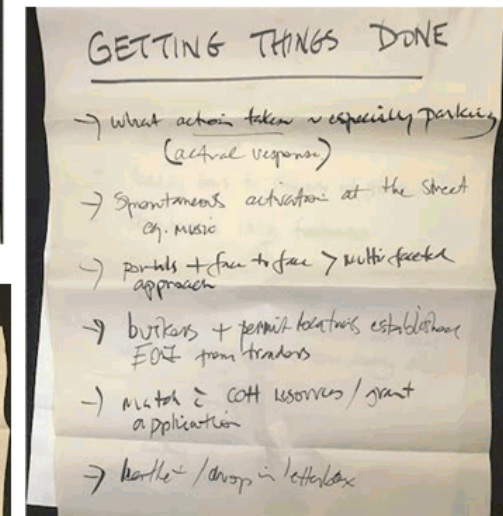 GETTING THINGS DONE
→ What action taken ~ especially parking
(actual response)
→ Spontaneous activation at the street
eg. music
→ portals + face to face > multi faceted
approach
→ buskers + permit locations
EOI from traders
→ match c̄ COH resources / grant
application
→ / drop in letterbox